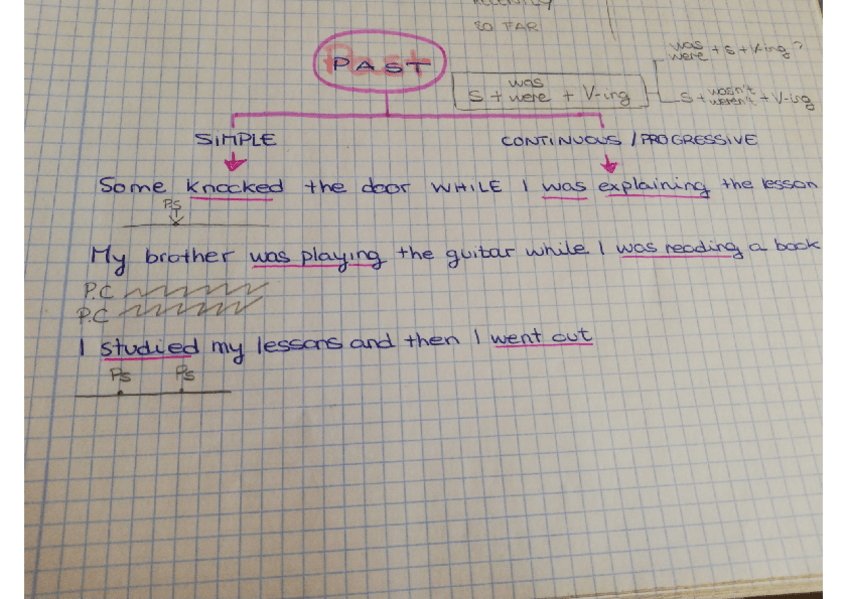 SO FAR
PAST
was
were + S + V-ing?
was
S + were + V-ing
wasn't
S + weren't + V-ing
SIMPLE
CONTINUOUS / PROGRESSIVE
Some knocked the door WHILE I was explaining the lesson
PS
My brother was playing the guitar while I was reading a book
P.C
P.C
I studied my lessons and then I went out
PS PS